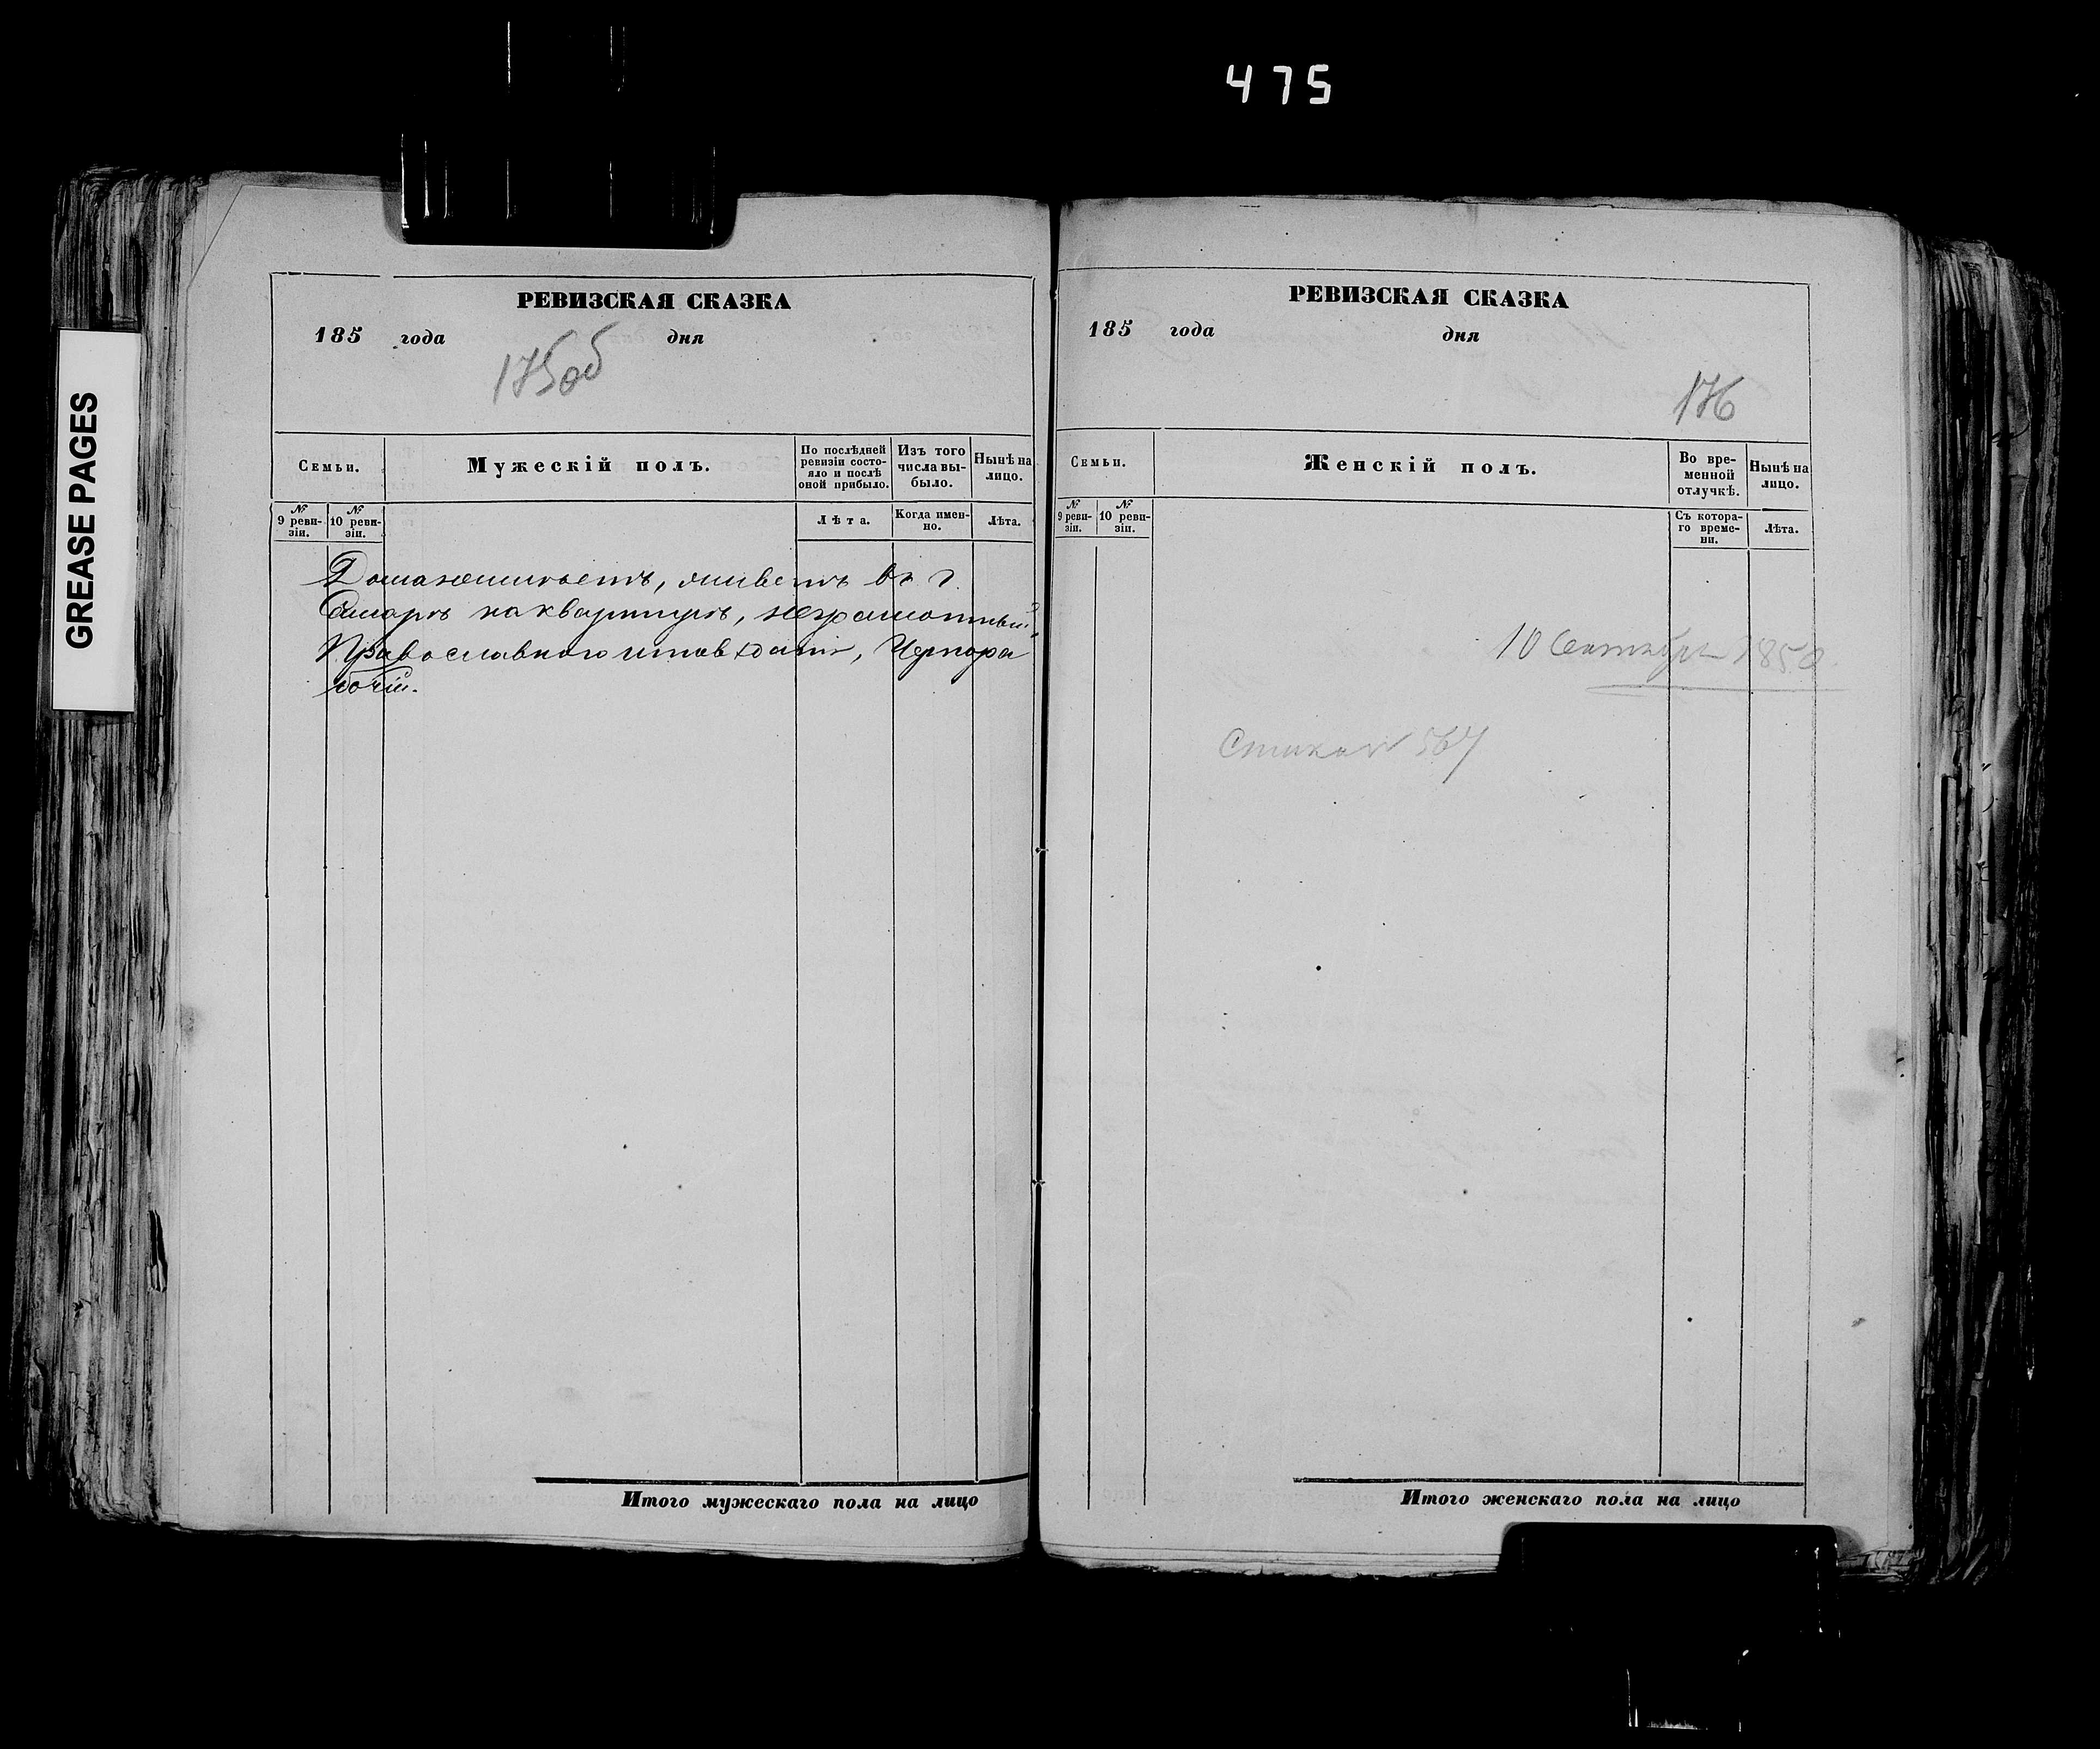 475
GREASE PAGES
РЕВИЗСКАЯ СКАЗКА
185 года дня
175об
Семьи.
Мужескій полъ.
По послѣдней ревизіи состояло и послѣ оной прибыло.
Изъ того числа выбыло.
Нынѣ на лицо.
№ 9 ревизіи.
№ 10 ревизіи.
Лѣта.
Когда именно.
Лѣта.
живетъ въ г.
Самарѣ на квартирѣ, неграмотный,
Православнаго исповѣданія, Чернора
бочій.
Итого мужескаго пола на лицо
РЕВИЗСКАЯ СКАЗКА
185 года дня
176
Семьи.
Женскій полъ.
Во временной отлучкѣ.
Нынѣ на лицо.
№ 9 ревизіи.
№ 10 ревизіи.
Съ котораго времени.
Лѣта.
10 Сентября 185
Итого женскаго пола на лицо